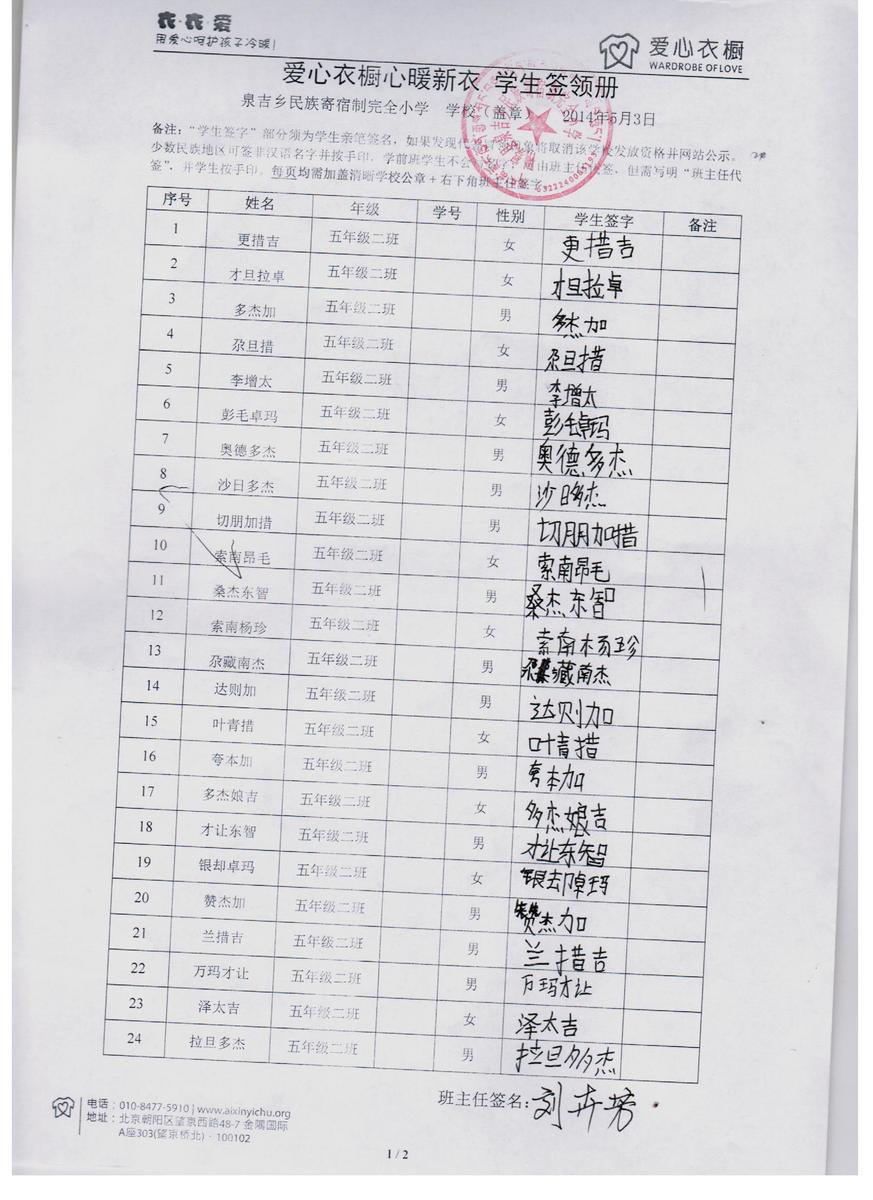 衣·衣·爱
用爱心呵护孩子冷暖!
爱心衣橱
WARDROBE OF LOVE
爱心衣橱心暖新衣 学生签领册
泉吉乡民族寄宿制完全小学 学校(盖章) 2014年5月3日
备注:“学生签字”部分须为学生亲笔签名,如果发现代 将取消该学校发放资格并网站公示。
少数民族地区可签非汉语名字并按手印,学前班学生不会 由班主任代签,但需写明“班主任代
签”,并学生按手印。每页均需加盖清晰学校公章+右下角班主任签字
序号 姓名 年级 学号 性别 学生签字 备注
1 更措吉 五年级二班 女 更措吉
2 才旦拉卓 五年级二班 女 才旦拉卓
3 多杰加 五年级二班 男 多杰加
4 尕旦措 五年级二班 女 尕旦措
5 李增太 五年级二班 男 李增太
6 彭毛卓玛 五年级二班 女 彭毛卓玛
7 奥德多杰 五年级二班 男 奥德多杰
8 沙日多杰 五年级二班 男 沙日多杰
9 切朋加措 五年级二班 男 切朋加措
10 索南昂毛 五年级二班 女 索南昂毛
11 桑杰东智 五年级二班 男 桑杰东智
12 索南杨珍 五年级二班 女 索南杨珍
13 尕藏南杰 五年级二班 男 尕藏南杰
14 达则加 五年级二班 男 达则加
15 叶青措 五年级二班 女 叶青措
16 夸本加 五年级二班 男 夸本加
17 多杰娘吉 五年级二班 女 多杰娘吉
18 才让东智 五年级二班 男 才让东智
19 银却卓玛 五年级二班 女 银却卓玛
20 赞杰加 五年级二班 男 赞杰加
21 兰措吉 五年级二班 男 兰措吉
22 万玛才让 五年级二班 男 万玛才让
23 泽太吉 五年级二班 女 泽太吉
24 拉旦多杰 五年级二班 男 拉旦多杰
班主任签名:刘卉芳
电话:010-8477-5910 | www.aixinyichu.org
地址:北京朝阳区望京西路48-7 金隅国际
A座303(望京桥北)·100102
1 / 2